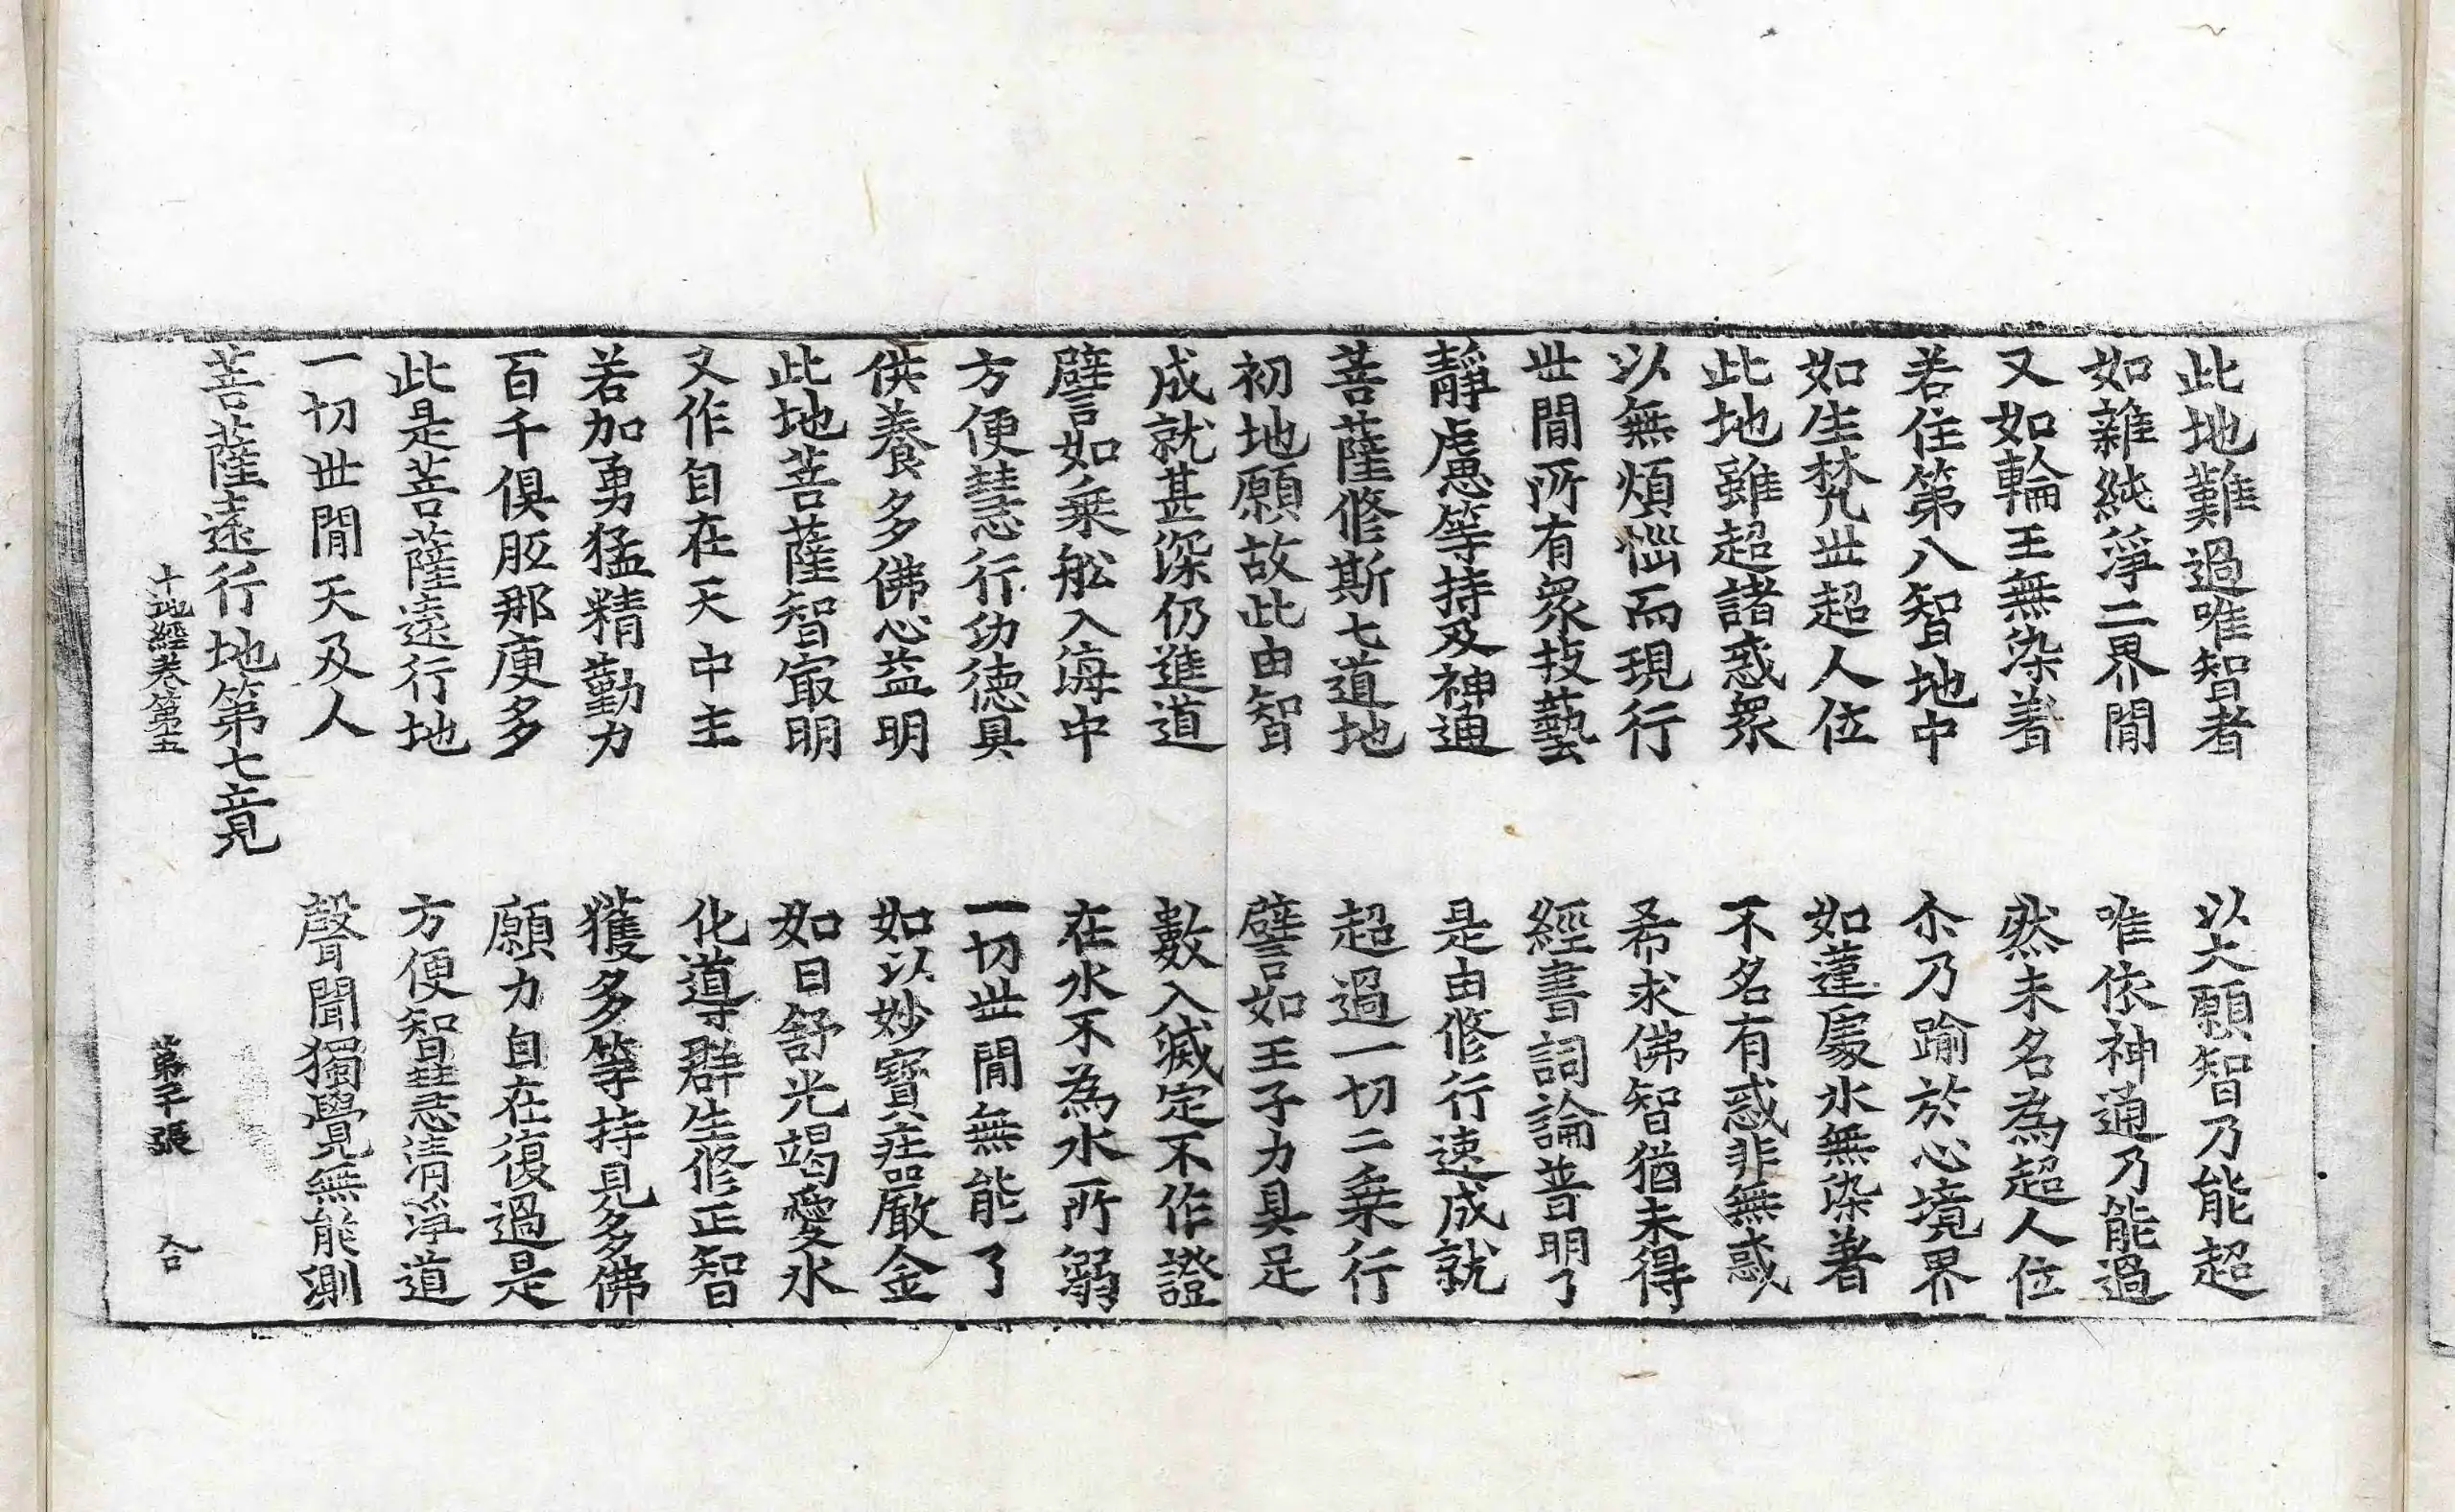 此地難過唯智者　以大願智乃能超
如雜純淨二界閒　唯依神通乃能過
又如輪王無染著　然未名為超人位
若住第八智地中　尒乃踰於心境界
如生梵世超人位　如蓮處水無染著
此地雖超諸惑衆　不名有惑非無惑
以無煩惱而現行　希求佛智猶未得
世閒所有衆技藝　經書詞論普明了
靜慮等持及神通　是由修行速成就
菩薩修斯七道地　超過一切二乘行
初地願故此由智　譬如王子力具足
成就甚深仍進道　數入滅定不作證
譬如乘舩入海中　在水不為水所溺
方便慧行功德具　一切世閒無能了
供養多佛心益明　如以妙寶莊嚴金
此地菩薩智㝡明　如日舒光竭愛水
又作自在天中主　化導群生修正智
若加勇猛精勤力　獲多等持見多佛
百千俱胝那庾多　願力自在復過是
此是菩薩遠行地　方便智慧清淨道
一切世閒天及人　聲聞獨覺無能測
菩薩遠行地第七竟
十地經卷第五　第二十張　合